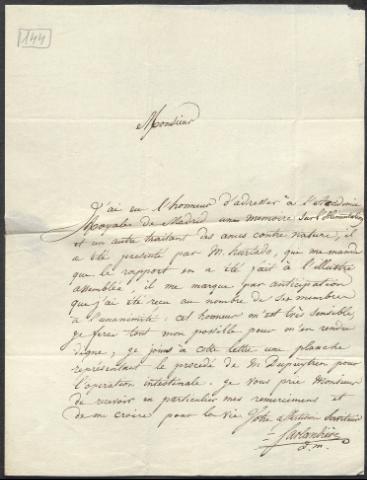 144
Monsieur
J'ai eu l'honneur d'adresser à l'Academie
Royale de Madrid une memoire sur l'
et un autre traitant des anus contre nature, il
a été presenté par M. hurtado, qui me mande
que le rapport en a été fait à l'illustre
assemblée, il me marque par anticipation
que j'ai été recu au nombre de ses membres
à l'unanimité. cet honneur m'est très sensible,
je ferai tout mon possible pour m'en rendre
digne, je joins à cette lettre une planche
representant le procédé de M Dupuytren pour
l'operation intestinale. je vous prie Monsieur
de recevoir en particulier mes remerciemens et
de me croire pour la vie Votre affectionné Serviteur
Sarlandière
d.m.